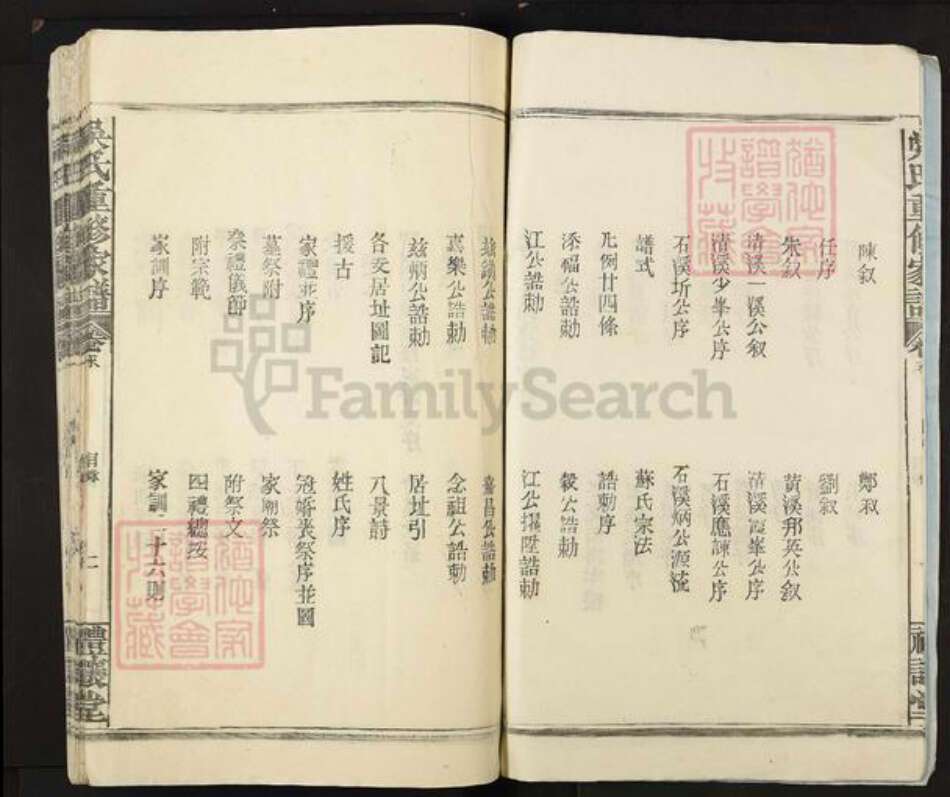 陳叙
鄭叙
任序
劉叙
朱叙
黃溪邦英公叙
清溪一溪公叙
清溪
峯公序
清溪少峯公序
石溪應諫公序
石溪圻公序
石溪炳公源流
譜式
蘇氏宗法
凡例廿四條
誥勅序
添福公誥勅
毅公誥勅
江公誥勅
江公擢陞誥勅
兹鎮公誥勅
嘉昌公誥勅
嘉樂公誥勅
念祖公誥勅
兹炳公誥勅
居址引
各支居址圖記
八景詩
援古
姓氏序
家禮並序
冠婚喪祭序並圖
墓祭附
家廟祭
祭禮儀節
附祭文
附宗範
四禮總按
家訓序
家訓二十六則
吳氏重修家譜
卷
目錄
二
禮讓堂
吳氏重修家譜
猶他家譜學會收藏
猶他家譜學會收藏
FamilySearch